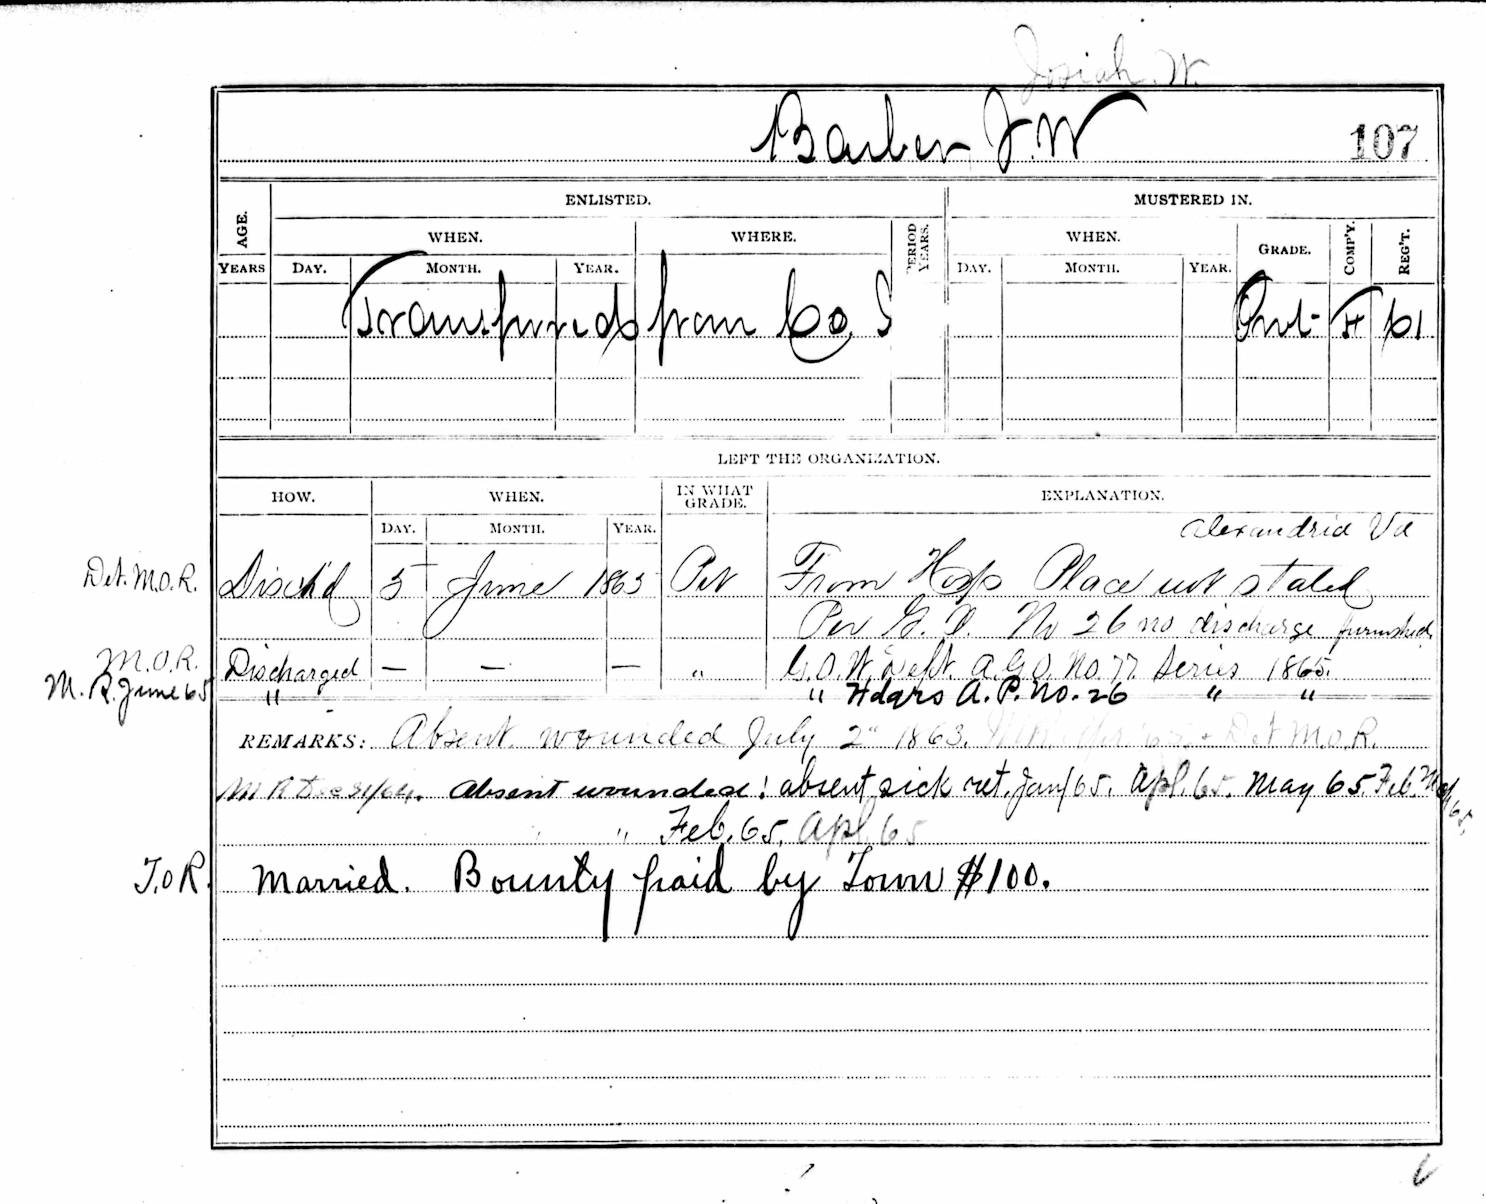 Josiah. W.
Barber, J. W
107
ENLISTED.
MUSTERED IN.
AGE.
WHEN.
WHERE.
PERIOD YEARS.
WHEN.
GRADE.
COMP'Y.
REG'T.
YEARS
DAY.
MONTH.
YEAR.
DAY.
MONTH.
YEAR.
Transfured from Co.
Pvt- F 61
LEFT THE ORGANIZATION.
HOW.
WHEN.
IN WHAT GRADE.
EXPLANATION.
DAY.
MONTH.
YEAR.
Alexandria Va
Det. M.O.R. Disch'd 5 June 1865 Pvt From Hosp Place not stated
Per G. O. No 26 no discharge furnished,
M.O.R. Discharged — — — " G.O.W. Dept. A.G.O. No. 77 Series 1865.
M. R. June 65 " " Hdqrs A. P. No. 26 " "
REMARKS: Absent wounded July 2" 1863. + Det M.O.R.
M R Absent wounded! absent sick ret. Jan/65. Apl. 65. May 65. Feb.
" Feb. 65. Apl. 65
T.O R. Married. Bounty paid by Town $100.